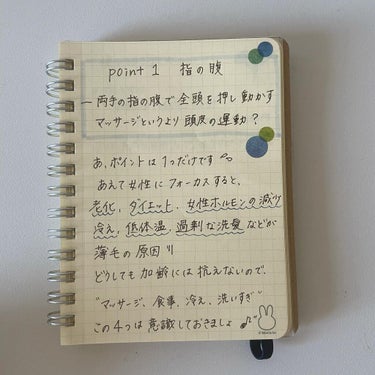 point 1 指の腹
一両手の指の腹で全頭を押し動かす
マッサージというより頭皮の運動？
あ、ポイントは1つだけです
あえて女性にフォーカスすると、
老化、ダイエット、女性ホルモンの減少
冷え、低体温、過剰な洗髪などが
薄毛の原因!!
どうしても加齢には抗えないので、
"マッサージ、食事、冷え、洗いすぎ"
この4つは意識しておきましょ♪